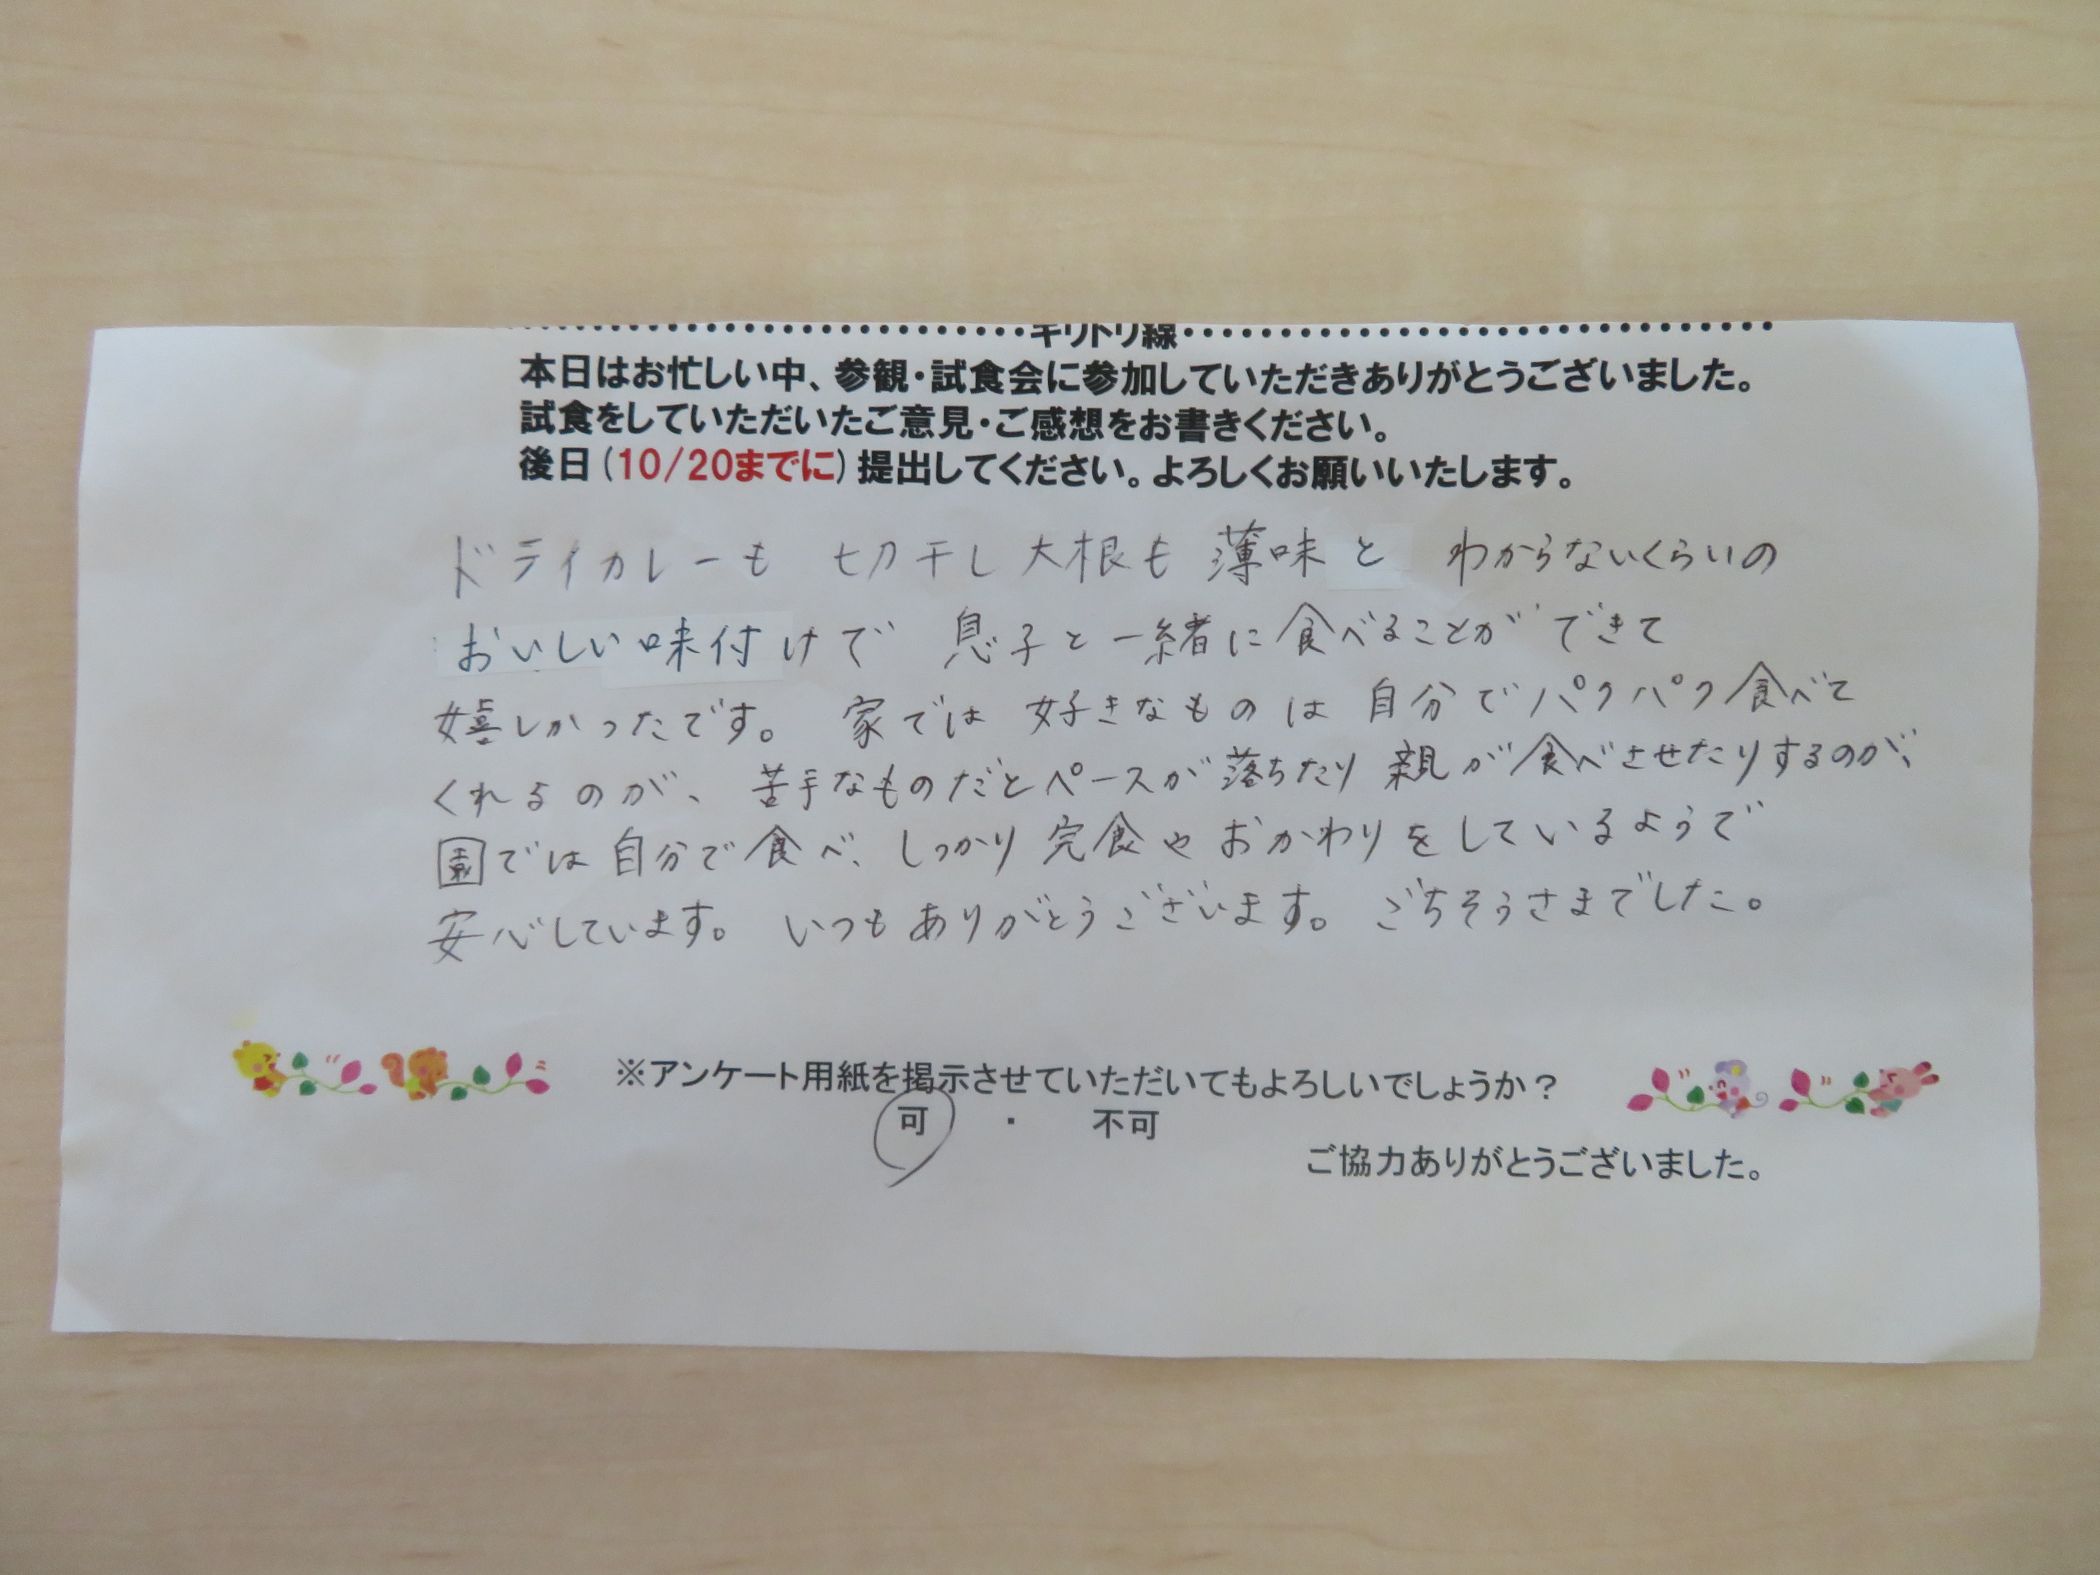 キリトリ線
本日はお忙しい中、参観・試食会に参加していただきありがとうございました。
試食をしていただいたご意見・ご感想をお書きください。
後日(10/20までに)提出してください。よろしくお願いいたします。
ドライカレーも 切干し大根も 薄味と わからないくらいの
おいしい味付けで 息子と一緒に食べることができて
嬉しかったです。 家では 好きなものは 自分でパクパク食べて
くれるのが、 苦手なものだとペースが落ちたり 親が食べさせたりするのが、
園では自分で食べ、しっかり完食やおかわりをしているようで
安心しています。 いつもありがとうございます。 ごちそうさまでした。
※アンケート用紙を掲示させていただいてもよろしいでしょうか？
可 ・ 不可
ご協力ありがとうございました。